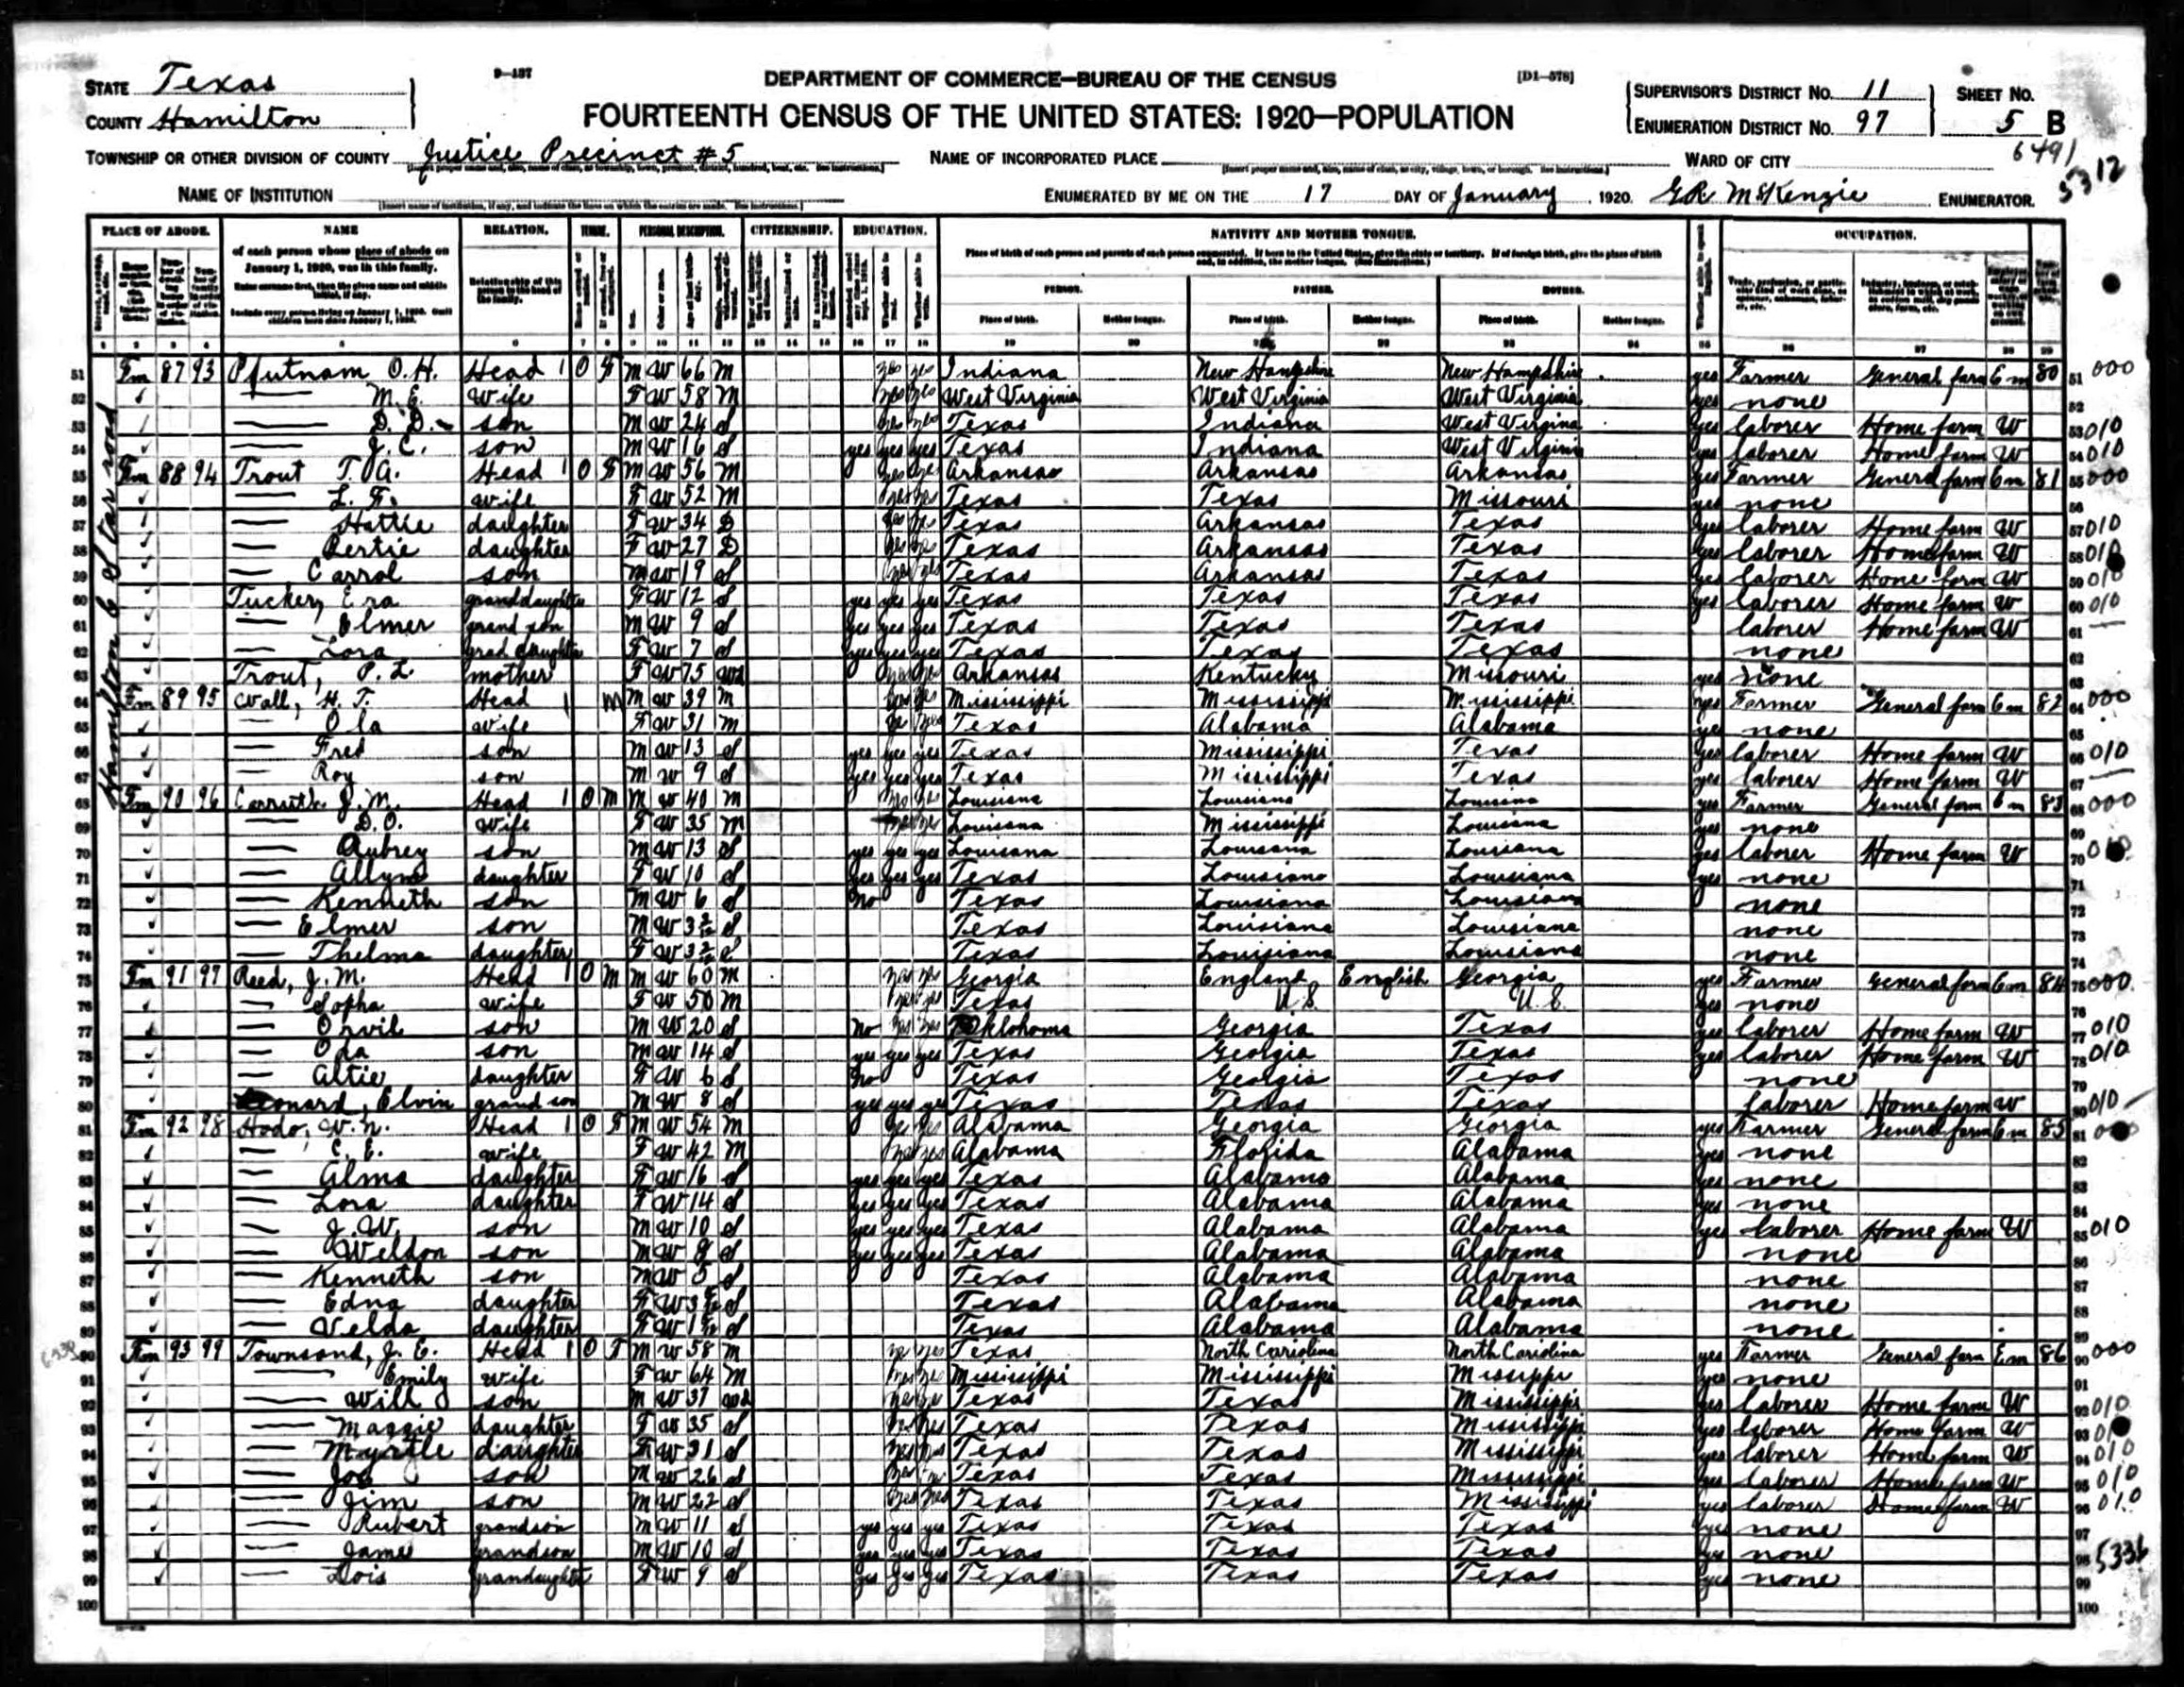 D-137
DEPARTMENT OF COMMERCE—BUREAU OF THE CENSUS
[D1-578]
FOURTEENTH CENSUS OF THE UNITED STATES: 1920—POPULATION
STATE Texas
COUNTY Hamilton
SUPERVISOR'S DISTRICT No. 11
SHEET No.
ENUMERATION DISTRICT No. 97
5 B
6491
5312
TOWNSHIP OR OTHER DIVISION OF COUNTY Justice Precinct #5
NAME OF INCORPORATED PLACE
WARD OF CITY
NAME OF INSTITUTION
ENUMERATED BY ME ON THE 17 DAY OF January, 1920. G R McKenzie ENUMERATOR.
PLACE OF ABODE. NAME RELATION. TENURE. PERSONAL DESCRIPTION. CITIZENSHIP. EDUCATION. NATIVITY AND MOTHER TONGUE. OCCUPATION.
of each person whose place of abode on January 1, 1920, was in this family.
Enter surname first, then the given name and middle initial, if any.
Include every person living on January 1, 1920. Omit children born since January 1, 1920.
Relationship of this person to the head of the family.
Place of birth of each person and parents of each person enumerated. If born in the United States, give the state or territory. If of foreign birth, give the place of birth and, in addition, the mother tongue. (See Instructions.)
PERSON. FATHER. MOTHER.
Place of birth. Mother tongue. Place of birth. Mother tongue. Place of birth. Mother tongue.
51 Fm 87 93 Putnam O. H. Head 1 O F M W 66 M yes yes Indiana New Hampshire New Hampshire yes Farmer General farm Em 80 51 000
52 M. E. wife F W 58 M yes yes West Virginia West Virginia West Virginia yes none 52
53 D. D. son M W 24 S yes yes Texas Indiana West Virginia yes laborer Home farm W 53 010
54 J. C. son M W 16 S yes yes yes Texas Indiana West Virginia yes laborer Home farm W 54 010
55 Fm 88 94 Trout T. A. Head 1 O F M W 56 M yes yes Arkansas Arkansas Arkansas yes Farmer General farm Em 81 55 000
56 L. F. wife F W 52 M yes yes Texas Texas Missouri yes none 56
57 Hattie daughter F W 34 D yes yes Texas Arkansas Texas yes laborer Home farm W 57 010
58 Bertie daughter F W 27 D yes yes Texas Arkansas Texas yes laborer Home farm W 58
59 Carrol son M W 19 S yes yes Texas Arkansas Texas yes laborer Home farm W 59 010
60 Tucker, Era granddaughter F W 12 S yes yes yes Texas Texas Texas yes laborer Home farm W 60 010
61 Elmer grand son M W 9 S yes yes yes Texas Texas Texas laborer Home farm W 61
62 Lora grand daughter F W 7 S yes yes yes Texas Texas Texas none 62
63 Trout, P. L. mother F W 75 Wd yes yes Arkansas Kentucky Missouri yes none 63
64 Fm 89 95 Wall, H. T. Head 1 M M W 39 M yes yes Mississippi Mississippi Mississippi yes Farmer General farm Em 82 64 000
65 Ola wife F W 31 M yes yes Texas Alabama Alabama yes none 65
66 Fred son M W 13 S yes yes yes Texas Mississippi Texas yes laborer Home farm W 66 010
67 Roy son M W 9 S yes yes yes Texas Mississippi Texas yes laborer Home farm W 67
68 Fm 90 96 Carruth J. M. Head 1 O M M W 40 M yes yes Louisiana Louisiana Louisiana yes Farmer General farm Em 83 68 000
69 D. O. wife F W 35 M yes yes Louisiana Mississippi Louisiana yes none 69
70 Aubrey son M W 13 S yes yes yes Louisiana Louisiana Louisiana yes laborer Home farm W 70
71 Allyne daughter F W 10 S yes yes yes Texas Louisiana Louisiana yes none 71
72 Kenneth son M W 6 S no Texas Louisiana Louisiana none 72
73 Elmer son M W 3 2/12 S Texas Louisiana Louisiana none 73
74 Thelma daughter F W 3 2/12 S Texas Louisiana Louisiana none 74
75 Fm 91 97 Reed, J. M. Head 1 O M M W 60 M yes yes Georgia England English Georgia yes Farmer General farm Em 84 75 000
76 Sopha wife F W 50 M yes yes Texas U.S. U.S. yes none 76
77 Orvil son M W 20 S no yes yes Oklohoma Georgia Texas yes laborer Home farm W 77 010
78 Oda son M W 14 S yes yes yes Texas Georgia Texas yes laborer Home farm W 78 010
79 Altie daughter F W 6 S no Texas Georgia Texas none 79
80 Leonard, Elvin grand son M W 8 S yes yes yes Texas Texas Texas laborer Home farm W 80 010
81 Fm 92 98 Hodo, W. N. Head 1 O F M W 54 M yes yes Alabama Georgia Georgia yes Farmer General farm Em 85 81
82 C. E. wife F W 42 M yes yes Alabama Florida Alabama yes none 82
83 Alma daughter F W 16 S yes yes yes Texas Alabama Alabama yes none 83
84 Lora daughter F W 14 S yes yes yes Texas Alabama Alabama yes none 84
85 J. W. son M W 10 S yes yes yes Texas Alabama Alabama yes laborer Home farm W 85 010
86 Weldon son M W 8 S yes yes yes Texas Alabama Alabama none 86
87 Kenneth son M W 5 S Texas Alabama Alabama none 87
88 Edna daughter F W S Texas Alabama Alabama none 88
89 Velda daughter F W S Texas Alabama Alabama none 89
90 Fm 93 99 Townsand, J. E. Head 1 O F M W 58 M yes yes Texas North Cariolina North Cariolina yes Farmer General farm Em 86 90 000
91 Emily wife F W 64 M yes yes Mississippi Mississippi Missippi yes none 91
92 Will son M W 37 Wd yes yes Texas Texas Mississippi yes laborer Home farm W 92 010
93 Maggie daughter F W 35 S yes yes Texas Texas Mississippi yes laborer Home farm W 93
94 Myrtle daughter F W 31 S yes yes Texas Texas Mississippi yes laborer Home farm W 94 010
95 Joe son M W 26 S yes yes Texas Texas Mississippi yes laborer Home farm W 95 010
96 Jim son M W 22 S yes yes Texas Texas Mississippi yes laborer Home farm W 96 010
97 Rubert grandson M W 11 S yes yes yes Texas Texas Texas yes none 97
98 James grandson M W 10 S yes yes yes Texas Texas Texas yes none 98 5336
99 Lois grandaughter F W 9 S yes yes yes Texas Texas Texas yes none 99
100 100